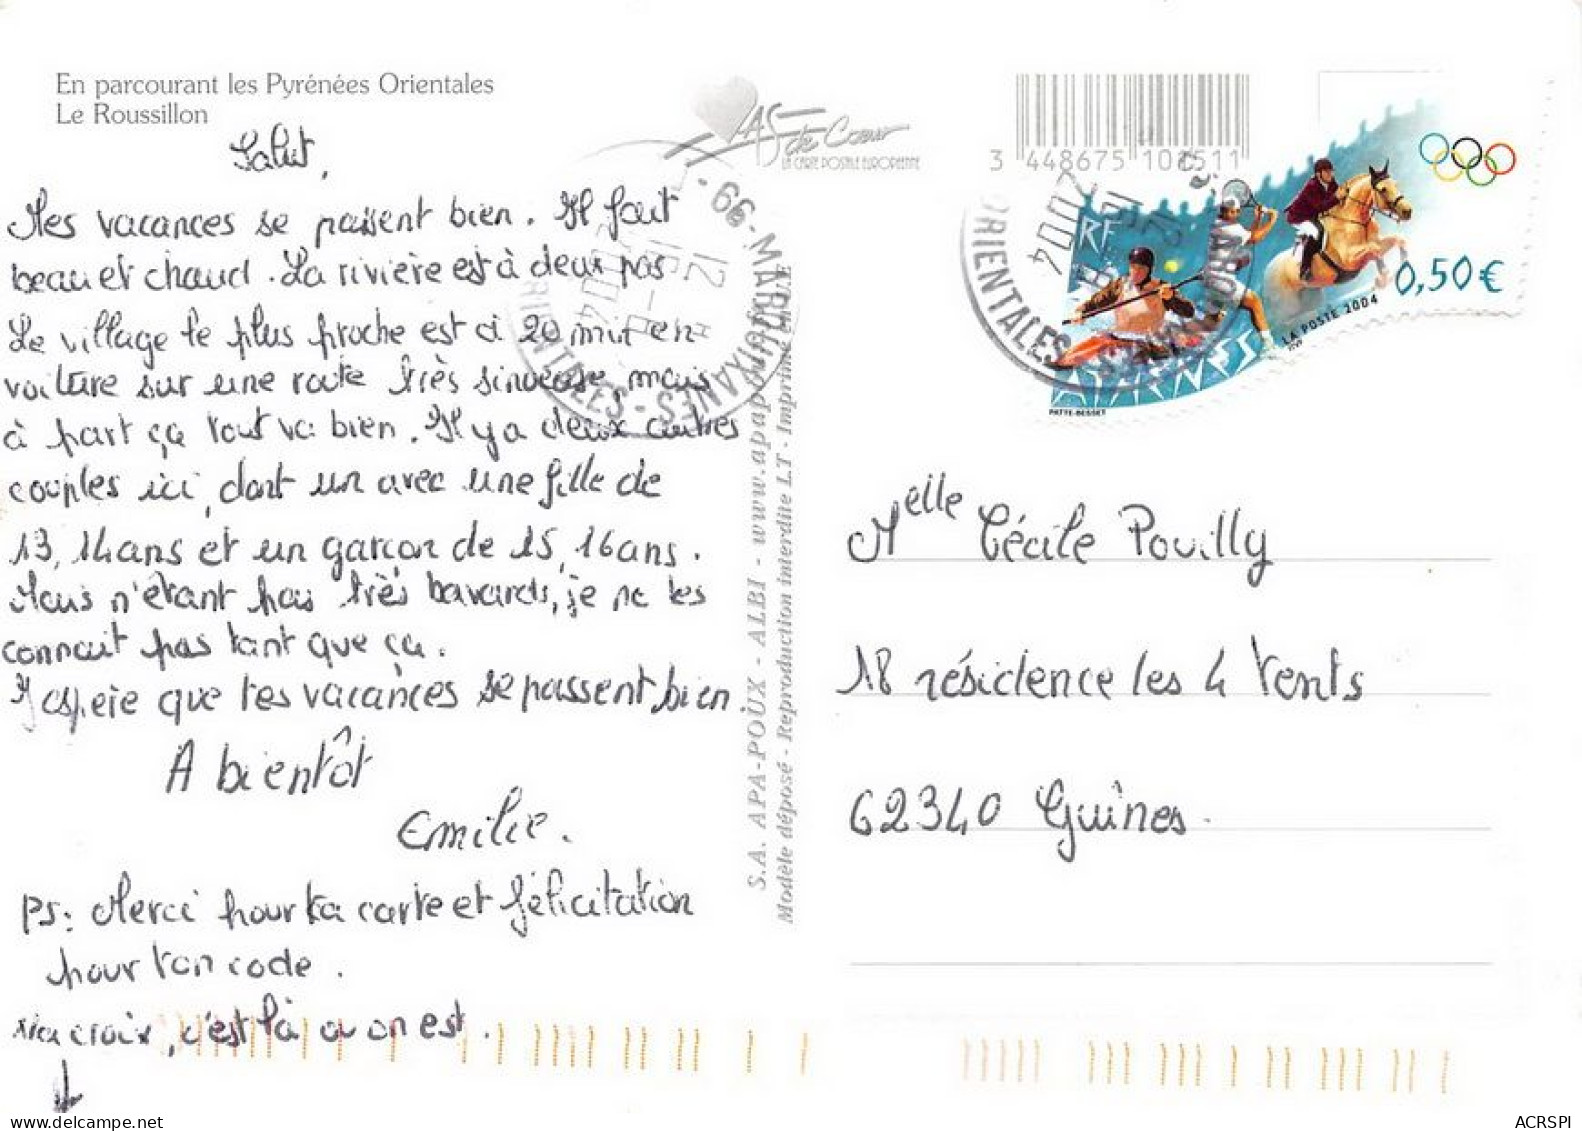 En parcourant les Pyrénées Orientales
Le Roussillon
Salut,
Mes vacances se passent bien. Il fait
beau et chaud. La rivière est à deux pas
Le village le plus proche est à 20 min en
voiture sur une route très sinueuse, mais
à part ça tout va bien. Il y a deux autres
couples ici, dont un avec une fille de
13, 14 ans et un garçon de 15, 16 ans.
Mais n'étant pas très bavards, je ne les
connait pas tant que ça.
J'espère que tes vacances se passent bien.
A bientôt
Emilie.
PS: Merci pour ta carte et félicitation
pour ton code.
La croix, c'est là où on est.
AS de Cœur
LA CARTE POSTALE EUROPEENNE
S.A. APA-POUX - ALBI - www.apapoux
Modèle déposé - Reproduction interdite LT - Imprimé en U.E
66 - MARQUIXANES
ORIENTALES
2004
3 448675 107511
RF
0,50 €
LA POSTE 2004
ATHÈNES
PATTE-BESSET
Melle Cécile Pouilly
18 résidence les 4 Vents
62340 Guînes.
ACRSPI
delcampe.net